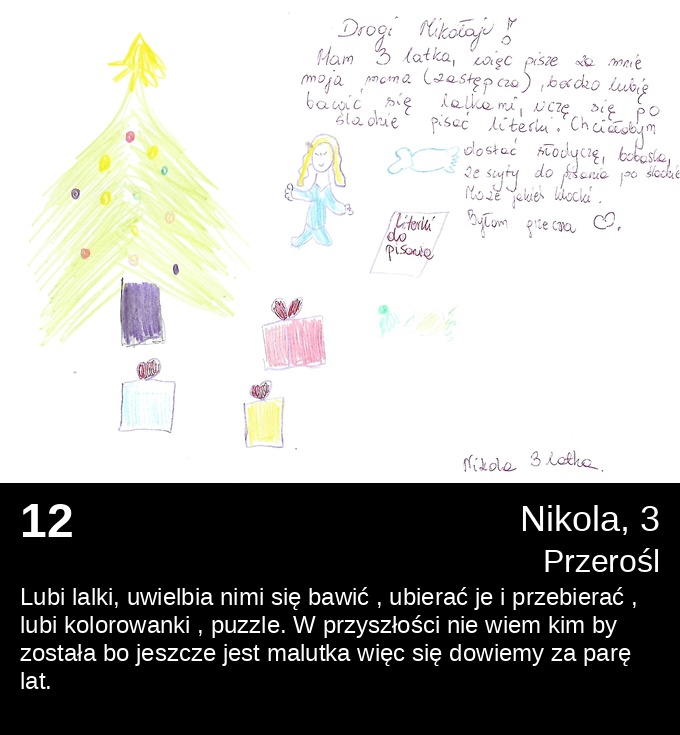 Drogi Mikołaju!
Mam 3 latka, więc pisze za mnie
moja mama (zastępcza), bardzo lubię
bawić się lalkami, uczę się po
śladzie pisać literki. Chciałabym
dostać słodycze, bobaska,
zeszyty do pisania po śladzie
Może jakieś klocki.
Byłam grzeczna
literki
do
pisania
Nikola 3 latka.
12
Nikola, 3
Przerośl
Lubi lalki, uwielbia nimi się bawić , ubierać je i przebierać ,
lubi kolorowanki , puzzle. W przyszłości nie wiem kim by
została bo jeszcze jest malutka więc się dowiemy za parę
lat.